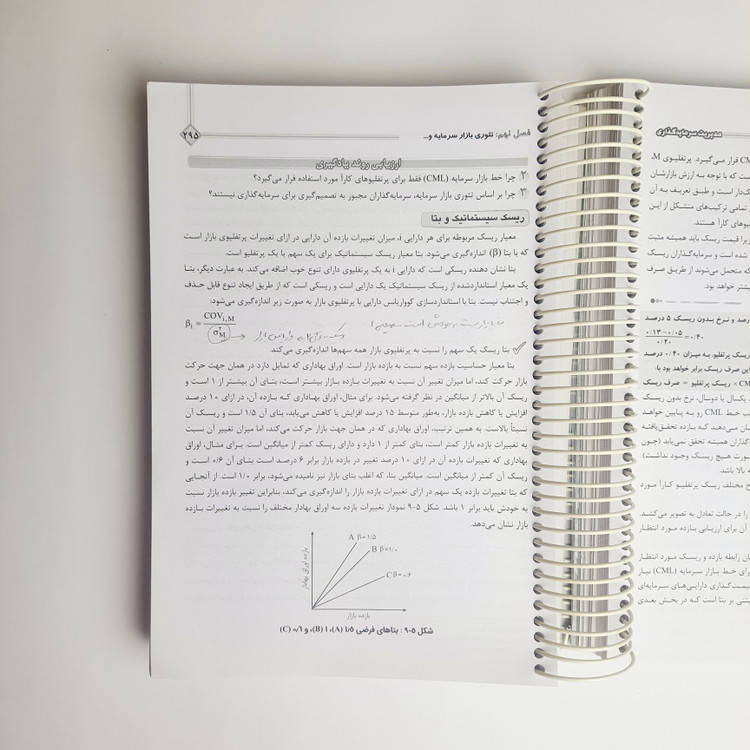 ۲۹۵
فصل نهم: تئوری بازار سرمایه و...
ارزیابی روند یادگیری
۲ چرا خط بازار سرمایه (CML) فقط برای پرتفلیوهای کارآ مورد استفاده قرار می‌گیرد؟
۳ چرا بر اساس تئوری بازار سرمایه، سرمایه‌گذاران مجبور به تصمیم‌گیری برای سرمایه‌گذاری نیستند؟
ریسک سیستماتیک و بتا
معیار ریسک مربوطه برای هر دارایی i، میزان تغییرات بازده آن دارایی در ازای تغییرات پرتفلیوی بازار است
که با بتا (β) اندازه‌گیری می‌شود. بتا معیار ریسک سیستماتیک برای یک سهم یا یک پرتفلیو است.
بتا نشان دهنده ریسکی است که دارایی i به یک پرتفلیوی دارای تنوع خوب اضافه می‌کند. به عبارت دیگر، بتا
یک معیار استانداردشده از ریسک سیستماتیک یک دارایی است و ریسکی است که از طریق ایجاد تنوع قابل حذف
و اجتناب نیست. بتا با استانداردسازی کوواریانس دارایی با پرتفلیوی بازار به صورت زیر اندازه‌گیری می‌شود:
βi = COVi,M / σ²M
بتا ریسک یک سهم را نسبت به پرتفلیوی بازار همه سهم‌ها اندازه‌گیری می‌کند.
بتا معیار حساسیت بازده سهم نسبت به بازده بازار است. اوراق بهاداری که تمایل دارد در همان جهت حرکت
بازار حرکت کند، اما میزان تغییر آن نسبت به تغییرات بازده بازار بیشتر است، بتای آن بیشتر از ۱ است و
ریسک آن بالاتر از میانگین در نظر گرفته می‌شود. برای مثال، اوراق بهاداری که بازده آن، در ازای ۱۰ درصد
افزایش یا کاهش بازده بازار، به‌طور متوسط ۱۵ درصد افزایش یا کاهش می‌یابد، بتای آن ۱/۵ است و ریسک آن
نسبتاً بالاست. به همین ترتیب، اوراق بهاداری که در همان جهت بازار حرکت می‌کند، اما میزان تغییر آن نسبت
به تغییرات بازده بازار کمتر است، بتای کمتر از ۱ دارد و دارای ریسک کمتر از میانگین است. برای مثال، اوراق
بهاداری که بازده آن در ازای ۱۰ درصد تغییر در بازده بازار برابر ۶ درصد است بتای آن ۰/۶ است و
ریسک آن کمتر از میانگین است. میانگین بتا، که اغلب بتای بازار نیز نامیده می‌شود، برابر ۱/۰ است. از آنجایی
که بتا تغییرات بازده یک سهم در ازای تغییرات بازده بازار را اندازه‌گیری می‌کند، بنابراین تغییر بازده بازار نسبت
به خودش باید برابر ۱ باشد. شکل ۵-۹ نمودار تغییرات بازده سه اوراق بهادار مختلف را نسبت به تغییرات بازده
بازار نشان می‌دهد.
بازده اوراق بهادار
A β=۱/۵
B β=۱/۰
C β=۰/۶
بازده بازار
شکل ۵-۹ : بتاهای فرضی ۱/۵ (A)، ۱ (B)، و ۰/۶ (C)
مدیریت سرمایه‌گذاری
قرار می‌گیرد. پرتفلیوی M،
است که با توجه به ارزش بازارشان
است و طبق تعریف به آن
تمامی ترکیب‌های متشکل از این
کارآ هستند.
زیرا قیمت ریسک باید همیشه مثبت
شده است و سرمایه‌گذاران ریسک
که متحمل می‌شوند از طریق صرف
بیشتر خواهد بود.
درصد و نرخ بدون ریسک ۵ درصد
۰/۱۳ - ۰/۰۵ / ۰/۲۰ = ۰/۴۰
ریسک پرتفلیو، به میزان ۰/۴۰ درصد
این صرف ریسک برابر خواهد بود با:
ریسک پرتفلیو = صرف ریسک
یکسال یا دوسال، نرخ بدون ریسک
خط CML رو به پایین خواهد
می‌دهد کـه بـازده تحقـق‌یافته
همیشه تحقق نمی‌یابد (چون
صورت هیچ ریسک وجود نداشت)
بالا باشد.
مختلف ریسک پرتفلیو کـارآ مـورد
را در حالت تعادل به تصویر می‌کشد.
آن برای ارزیابی بـازده مـورد انتظـار
رابطه بازده و ریسک مـورد انتظـار
برای خـط بـازار سـرمایه (CML) نیـاز
دارایی‌هـای سـرمایه‌ای
بر بتا است کـه در بخـش بعدی